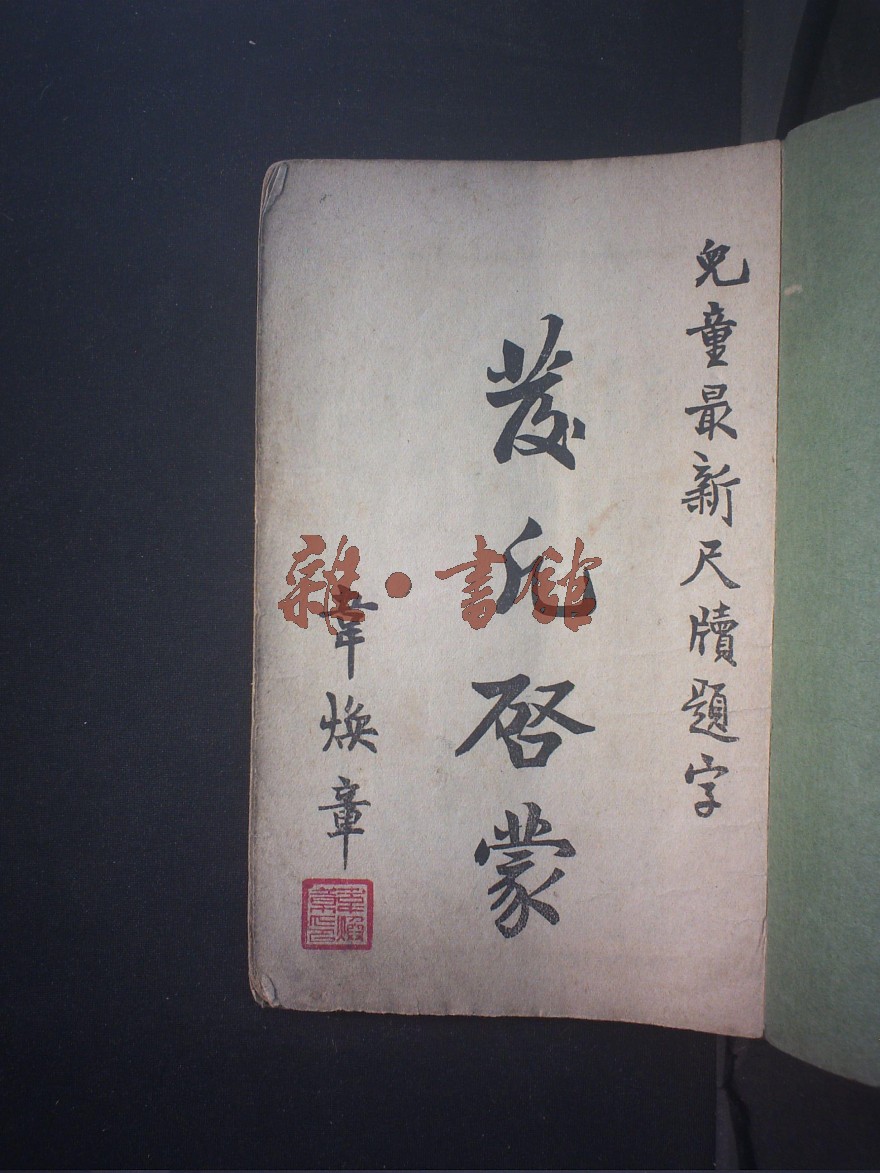 兒童最新尺牘題字
發凡啓蒙
韋煥章
雜·書館